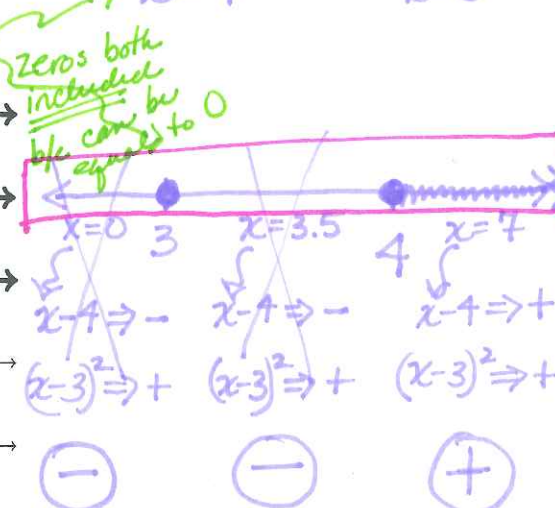 zeros both
included
b/c can be
equal to 0
x=0 3 x=3.5 4 x=7
x-4 ⇒ - x-4 ⇒ - x-4 ⇒ +
(x-3)² ⇒ + (x-3)² ⇒ + (x-3)² ⇒ +
- - +